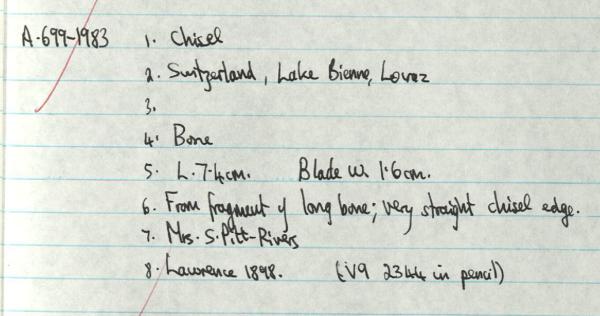 A·699-1983 1. Chisel
2. Switzerland, Lake Bienne, Lovrez
3.
4. Bone
5. L. 7·4cm. Blade W. 1·6cm.
6. From fragment of long bone; very straight chisel edge.
7. Mrs. S. Pitt-Rivers
8. Lawrence 1898. (iv9 2344 in pencil)